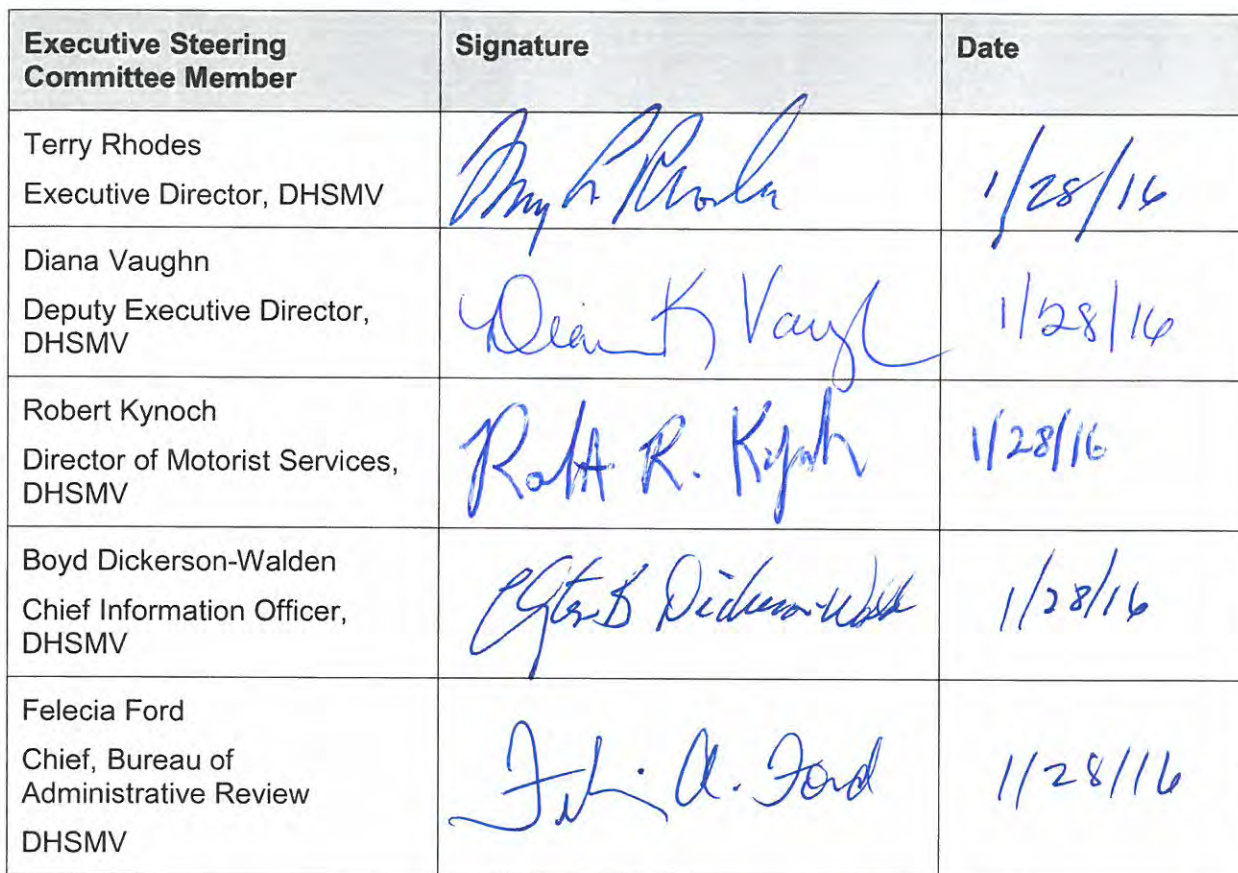 Executive Steering Committee Member
Signature
Date
Terry Rhodes
Executive Director, DHSMV
1/28/16
Diana Vaughn
Deputy Executive Director,
DHSMV
K Vaugh
1/28/16
Robert Kynoch
Director of Motorist Services,
DHSMV
R. Kynoch
1/28/16
Boyd Dickerson-Walden
Chief Information Officer,
DHSMV
B Dickerson-Wald
1/28/16
Felecia Ford
Chief, Bureau of
Administrative Review
DHSMV
A. Ford
1/28/16